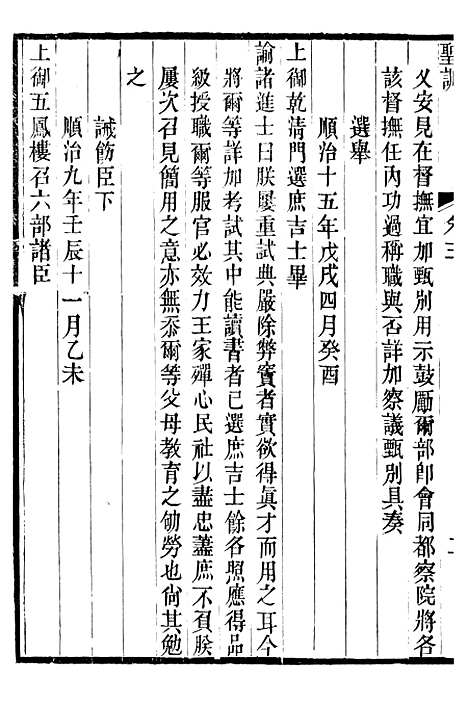 聖訓
卷三
乂安見在督撫宜加甄別用示鼓勵爾部卽會同都察院將各
該督撫任內功過稱職與否詳加察議甄別具奏
選舉
順治十五年戊戌四月癸酉
上御乾淸門選庶吉士畢
諭諸進士曰朕屢重試典嚴除弊竇者實欲得眞才而用之耳今
將爾等詳加考試其中能讀書者已選庶吉士餘各照應得品
級授職爾等服官必效力王家殫心民社以盡忠藎庶不負朕
屢次召見簡用之意亦無忝爾等父母敎育之劬勞也尙其勉
之
誡飭臣下
順治九年壬辰十一月乙未
上御五鳳樓召六部諸臣